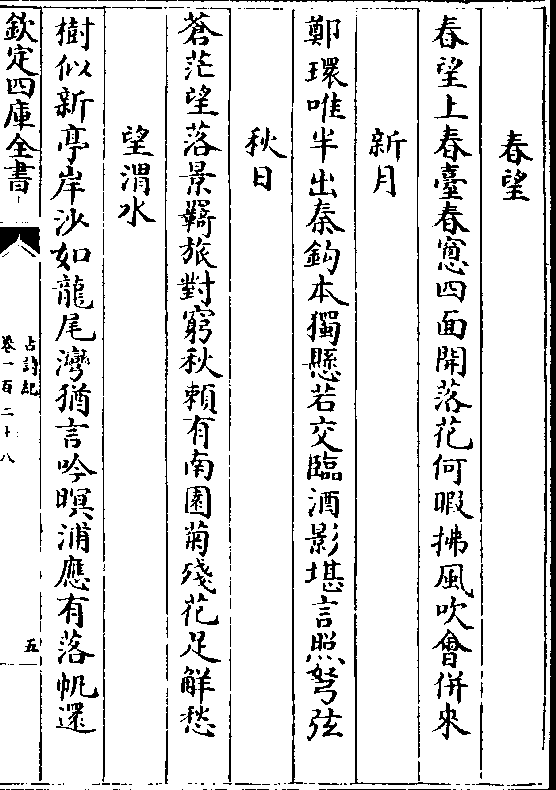 春望
春望上春臺春窻四面開落花何暇拂風吹會併來
新月
鄭環唯半出秦鈎本獨懸若交臨酒影堪言照弩弦
秋日
蒼茫望落景羇旅對窮秋頼有南園菊殘花足解愁
望渭水
樹似新亭岸沙如龍尾灣猶言吟暝浦應有落帆還
欽定四庫全書
古詩紀
卷一百二十八
五